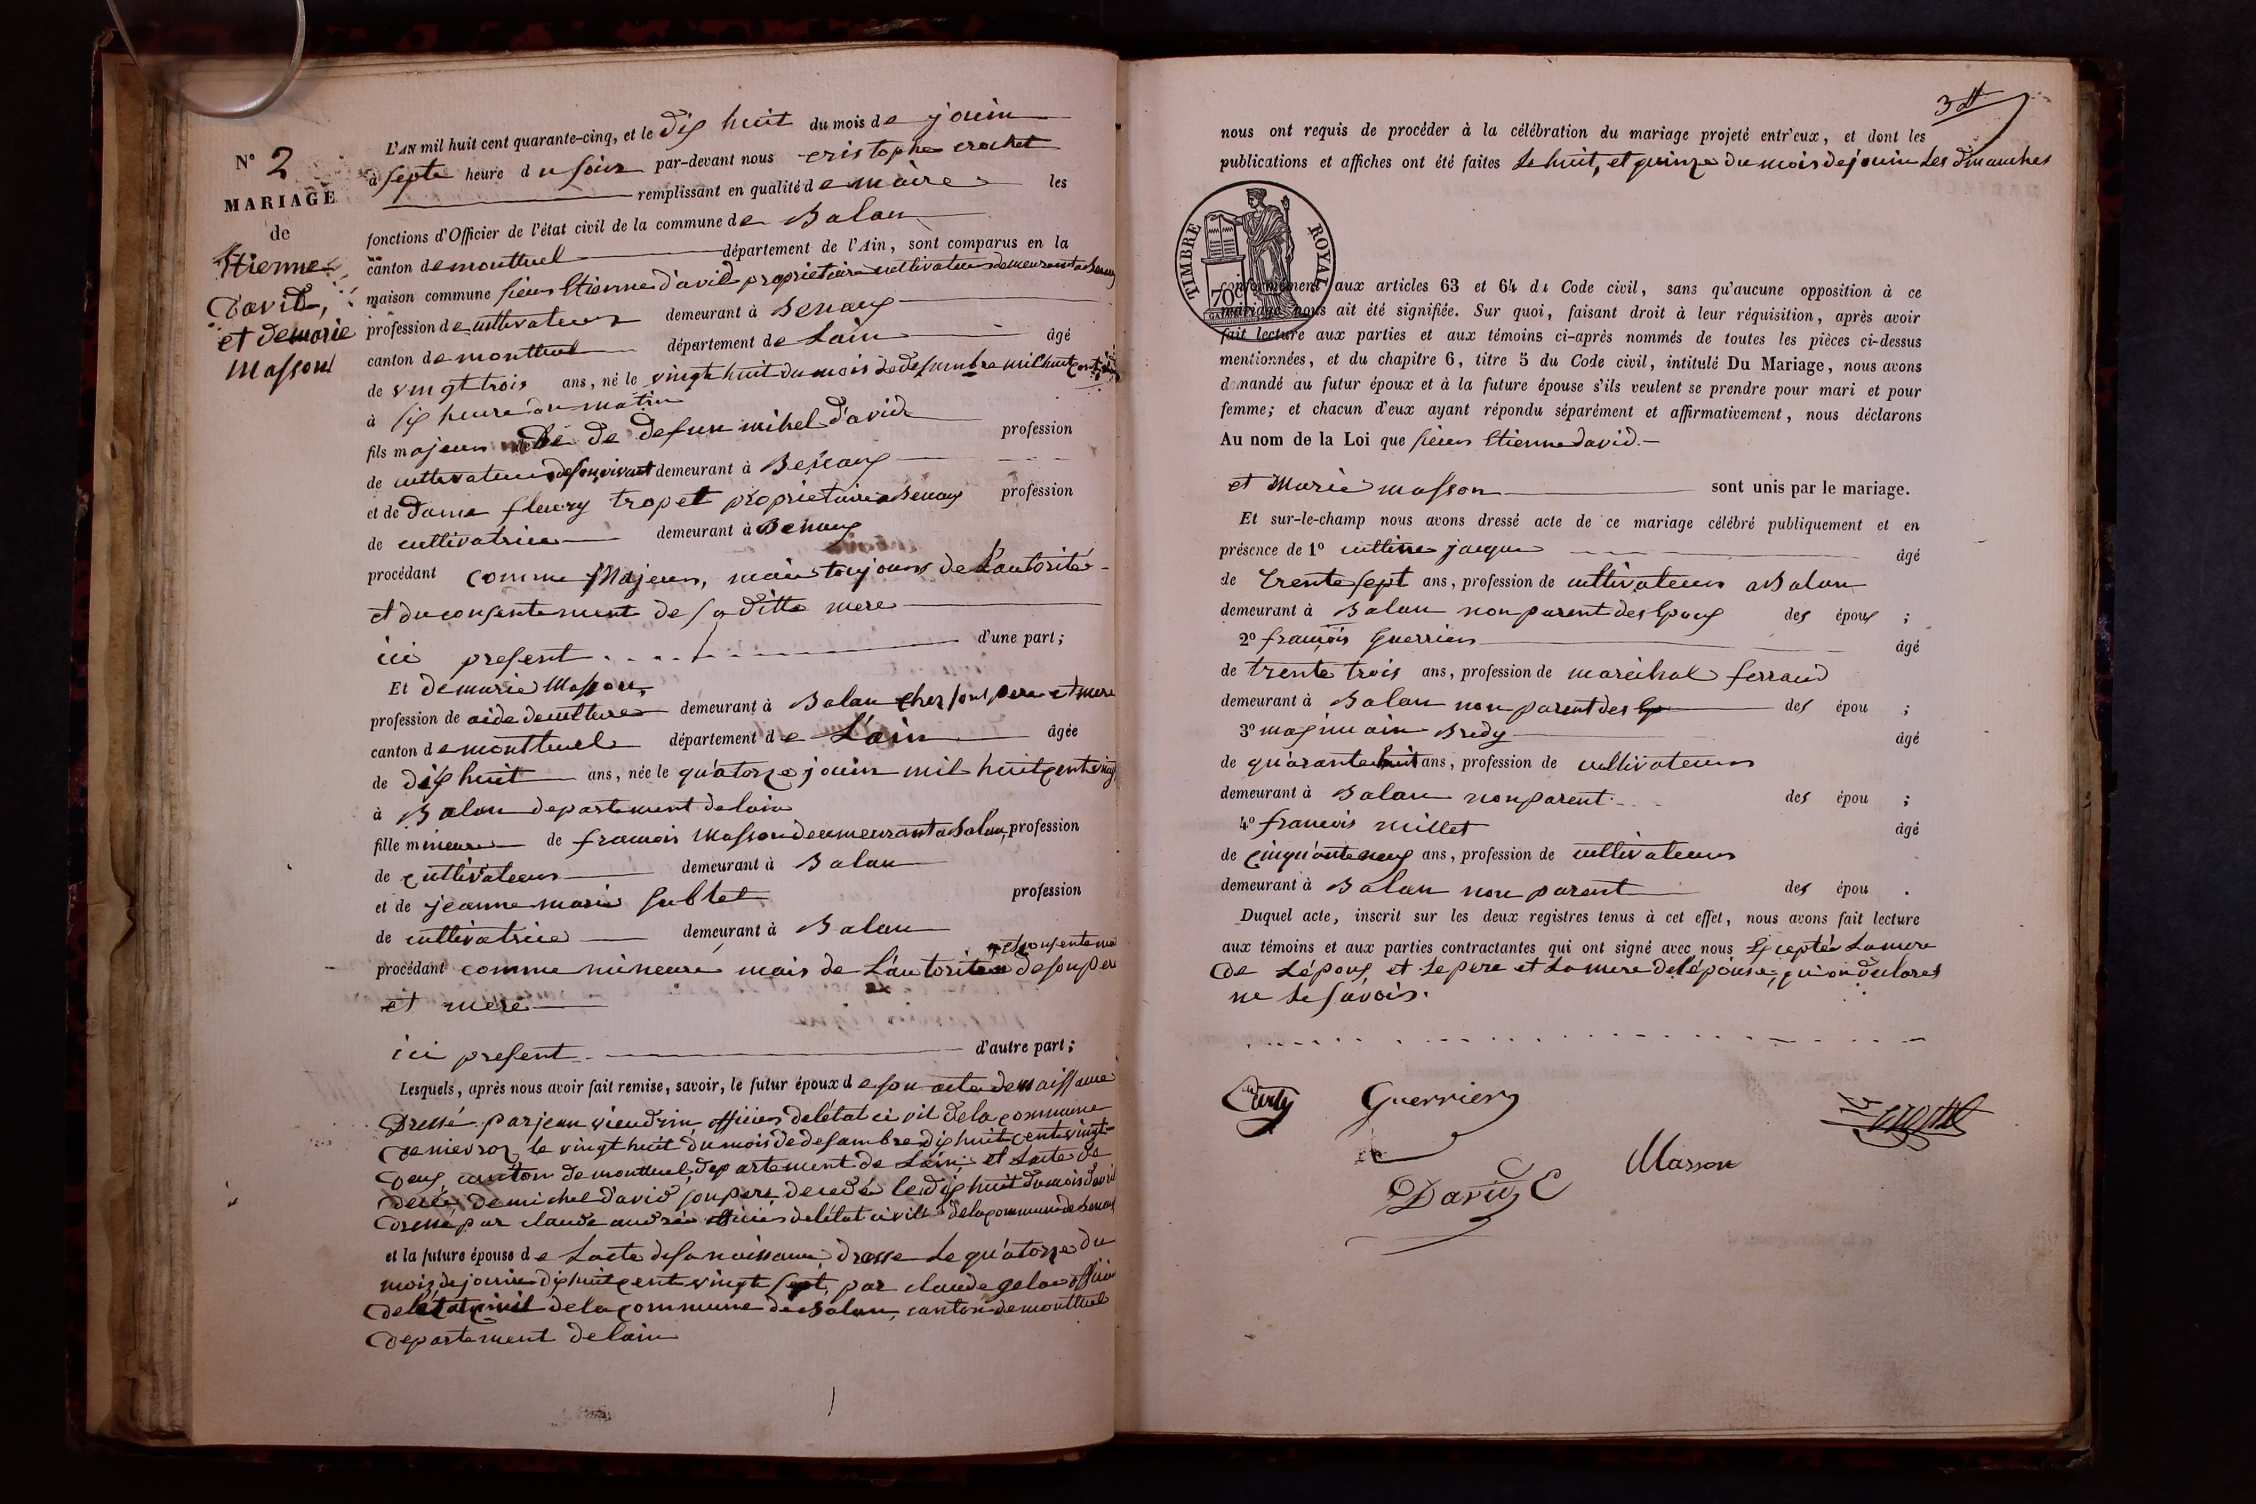 N° 2
MARIAGE
de
Etienne
David,
et de marie
Masson
L'AN mil huit cent quarante-cinq, et le dix huit du mois de jouin
à septe heure du soir par-devant nous cristophe crochet
remplissant en qualité de maire les
fonctions d'Officier de l'état civil de la commune de Balan
canton de montluel département de l'Ain, sont comparus en la
maison commune sieur Etienne david proprietaire cultivateur demeurant a benaux
profession de cultivateur demeurant à Benaux
canton de montluel département de Lain âgé
de vingt trois ans, né le vingt huit du mois de desembre mil huit cent
à six heure du matin
fils majeur de defun mihel david profession
de cultivateur de son vivant demeurant à Benaux
et de Dame fleury tropet proprietaire a Benaux profession
de cultivatrice demeurant à Benaux
procédant comme Majeur, mais toujours de L'autorité
et du consentement de sa ditte mere
ici present d'une part;
Et de marie Masson,
profession de aide de culture demeurant à Balan cher sont pere et mere
canton de montluel département de L'ain âgée
de dix huit ans, née le quatorze jouin mil huit cent vingt
à Balan departement de lain
fille mineure de francois Masson demeurant a Balan, profession
de cultivateur demeurant à Balan
et de jeanne marie Sublet profession
de cultivatrice demeurant à Balan
et consenteme
procédant comme mineure mais de L'autorite de son pere
et mere
ici present d'autre part;
Lesquels, après nous avoir fait remise, savoir, le futur époux de son acte de naissance
Dressé par jean viendrin officier de létat civil de la commune
de nievroz le vingt huit du mois de desambre dix huit cent vingt
deux canton de montluel, departement de Lain, et Lacte de
décé de michel david son pere decedé le dix huit du mois davril
dressé par claude andré officier de létat civil de la commune de benaux
et la future épouse de Lacte de sa naissance, dresse le quatorze du
mois de jouin dix huit cent vingt sept, par claude gelas officier
de létat civil de la commune de Balan, canton de montluel
departement de lain
3
nous ont requis de procéder à la célébration du mariage projeté entr'eux, et dont les
publications et affiches ont été faites le huit, et quinze du mois de jouin les dimanches
TIMBRE ROYAL
70c
conformément aux articles 63 et 64 du Code civil, sans qu'aucune opposition à ce
mariage nous ait été signifiée. Sur quoi, faisant droit à leur réquisition, après avoir
fait lecture aux parties et aux témoins ci-après nommés de toutes les pièces ci-dessus
mentionnées, et du chapitre 6, titre 5 du Code civil, intitulé Du Mariage, nous avons
demandé au futur époux et à la future épouse s'ils veulent se prendre pour mari et pour
femme; et chacun d'eux ayant répondu séparément et affirmativement, nous déclarons
Au nom de la Loi que sieur Etienne david.
et Marie masson sont unis par le mariage.
Et sur-le-champ nous avons dressé acte de ce mariage célébré publiquement et en
présence de 1° jacque âgé
de Trente sept ans, profession de cultivateur a Balan
demeurant à Balan non parent des Epoux des époux ;
2° françois Guerrier âgé
de trente trois ans, profession de maréchal ferrand
demeurant à Balan non parent des Ep des épou ;
3° maximain Bredy âgé
de quarante huit ans, profession de cultivateur
demeurant à Balan non parent des épou ;
4° francois millet âgé
de cinquante neuf ans, profession de cultivateur
demeurant à Balan non parent des épou .
Duquel acte, inscrit sur les deux registres tenus à cet effet, nous avons fait lecture
aux témoins et aux parties contractantes qui ont signé avec nous Exceptér La mere
de Lépoux et le pere et La mere de lépouse, qui on declares
ne le savoir.
Guerrier
Masson
David E